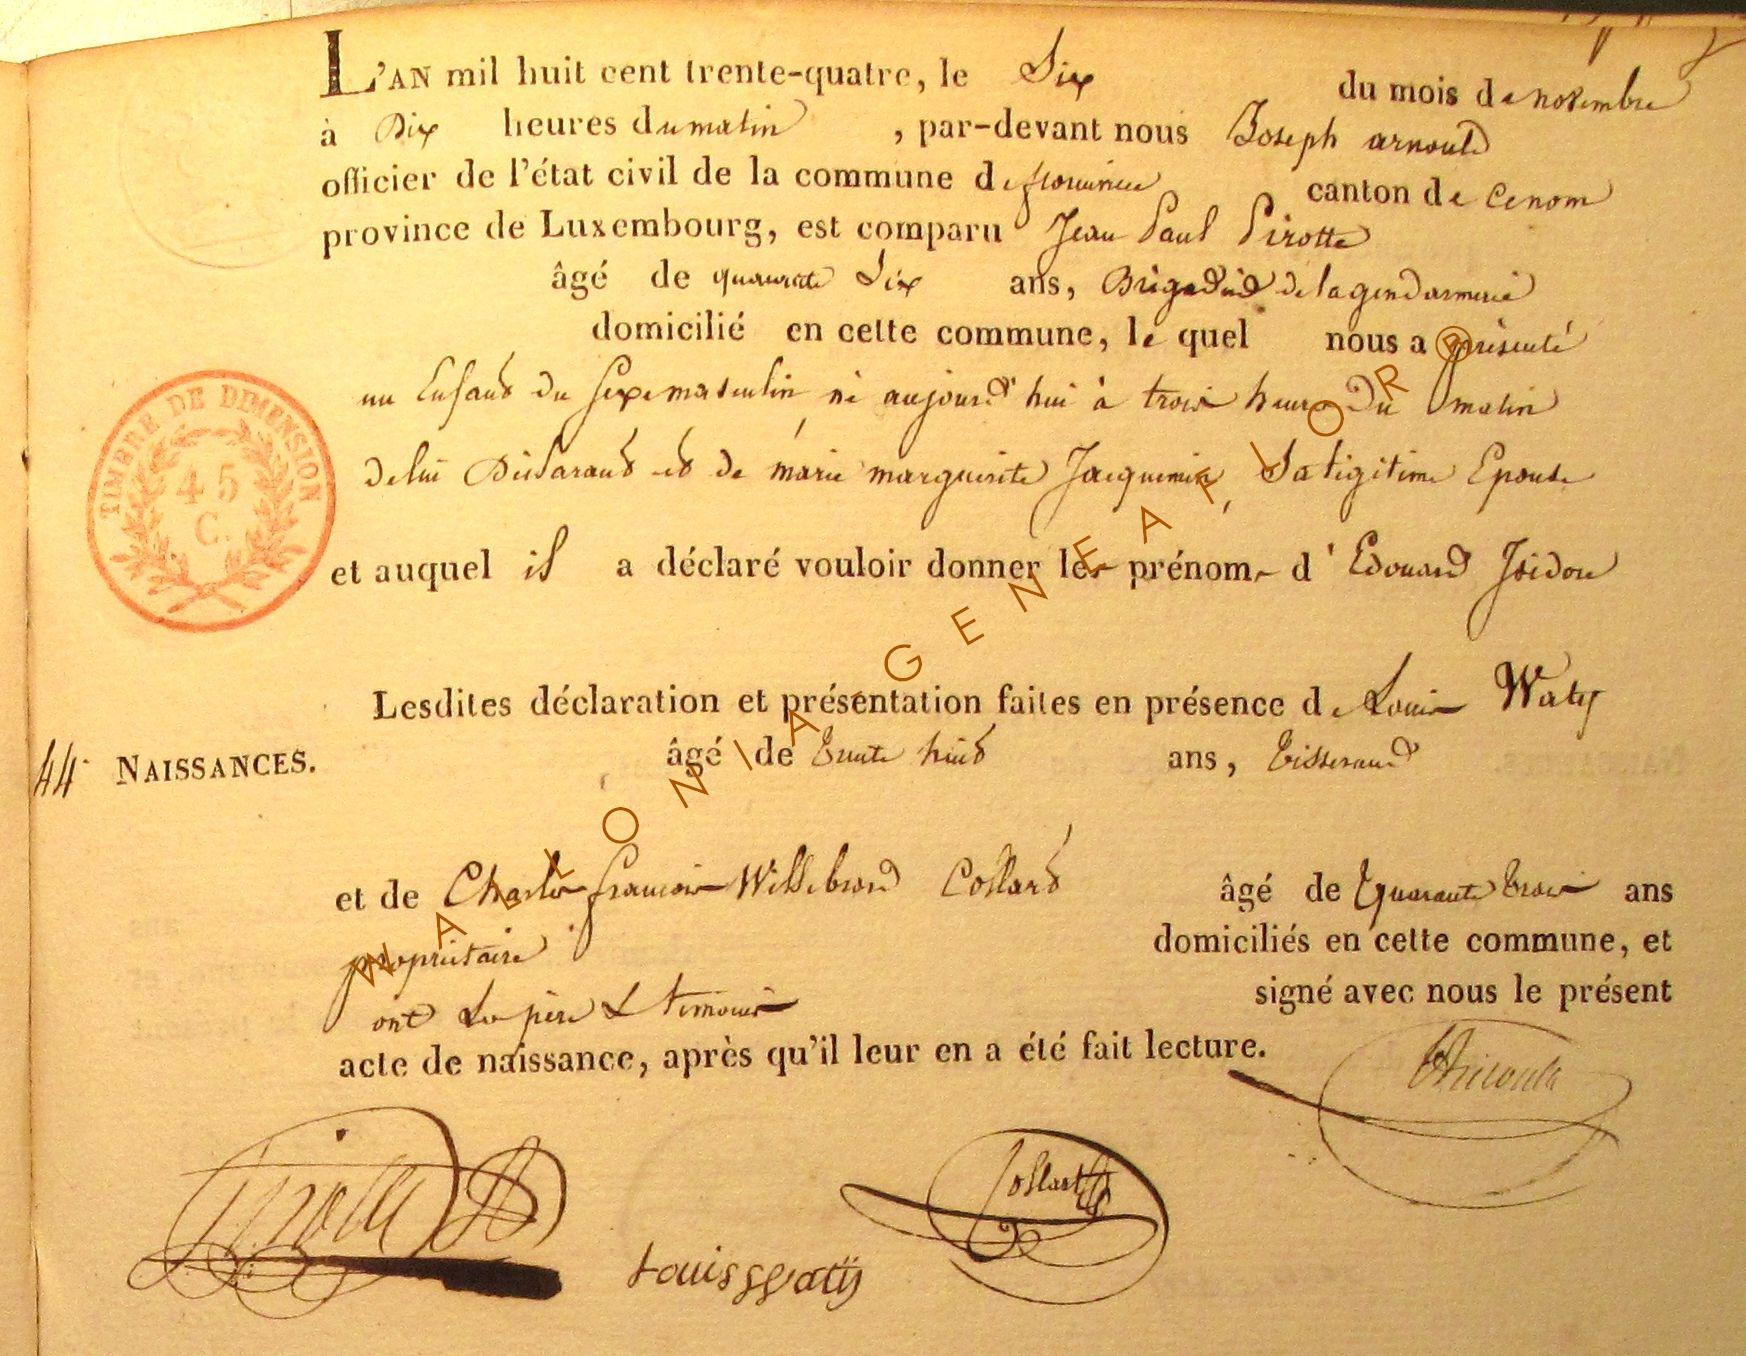 L'AN mil huit cent trente-quatre, le Six du mois de novembre
à Dix heures du matin, par-devant nous Joseph arnould
officier de l'état civil de la commune de canton de
province de Luxembourg, est comparu Jean Paul Pirotte
âgé de quarante Six ans, Brigadier de la gendarmerie
domicilié en cette commune, le quel nous a présenté
un Enfant du Sexe masculin, né aujourd'hui à trois heures du matin
de lui Déclarant et de marie marguerite Jacquemin, Sa ligitime Epouse
et auquel il a déclaré vouloir donner les prénoms d'Edouard Isidore
Lesdites déclaration et présentation faites en présence de Louis Waty
44 NAISSANCES. âgé de trente huit ans, tisserand
et de Charles françois Willebrord Collard âgé de Quarante trois ans
propriétaire domiciliés en cette commune, et
ont Le père & témoins signé avec nous le présent
acte de naissance, après qu'il leur en a été fait lecture.
Pirotte
Louis Watÿ
Collard
TIMBRE DE DIMENSION
45
C.
WALLONIA GENEAFLOR ®